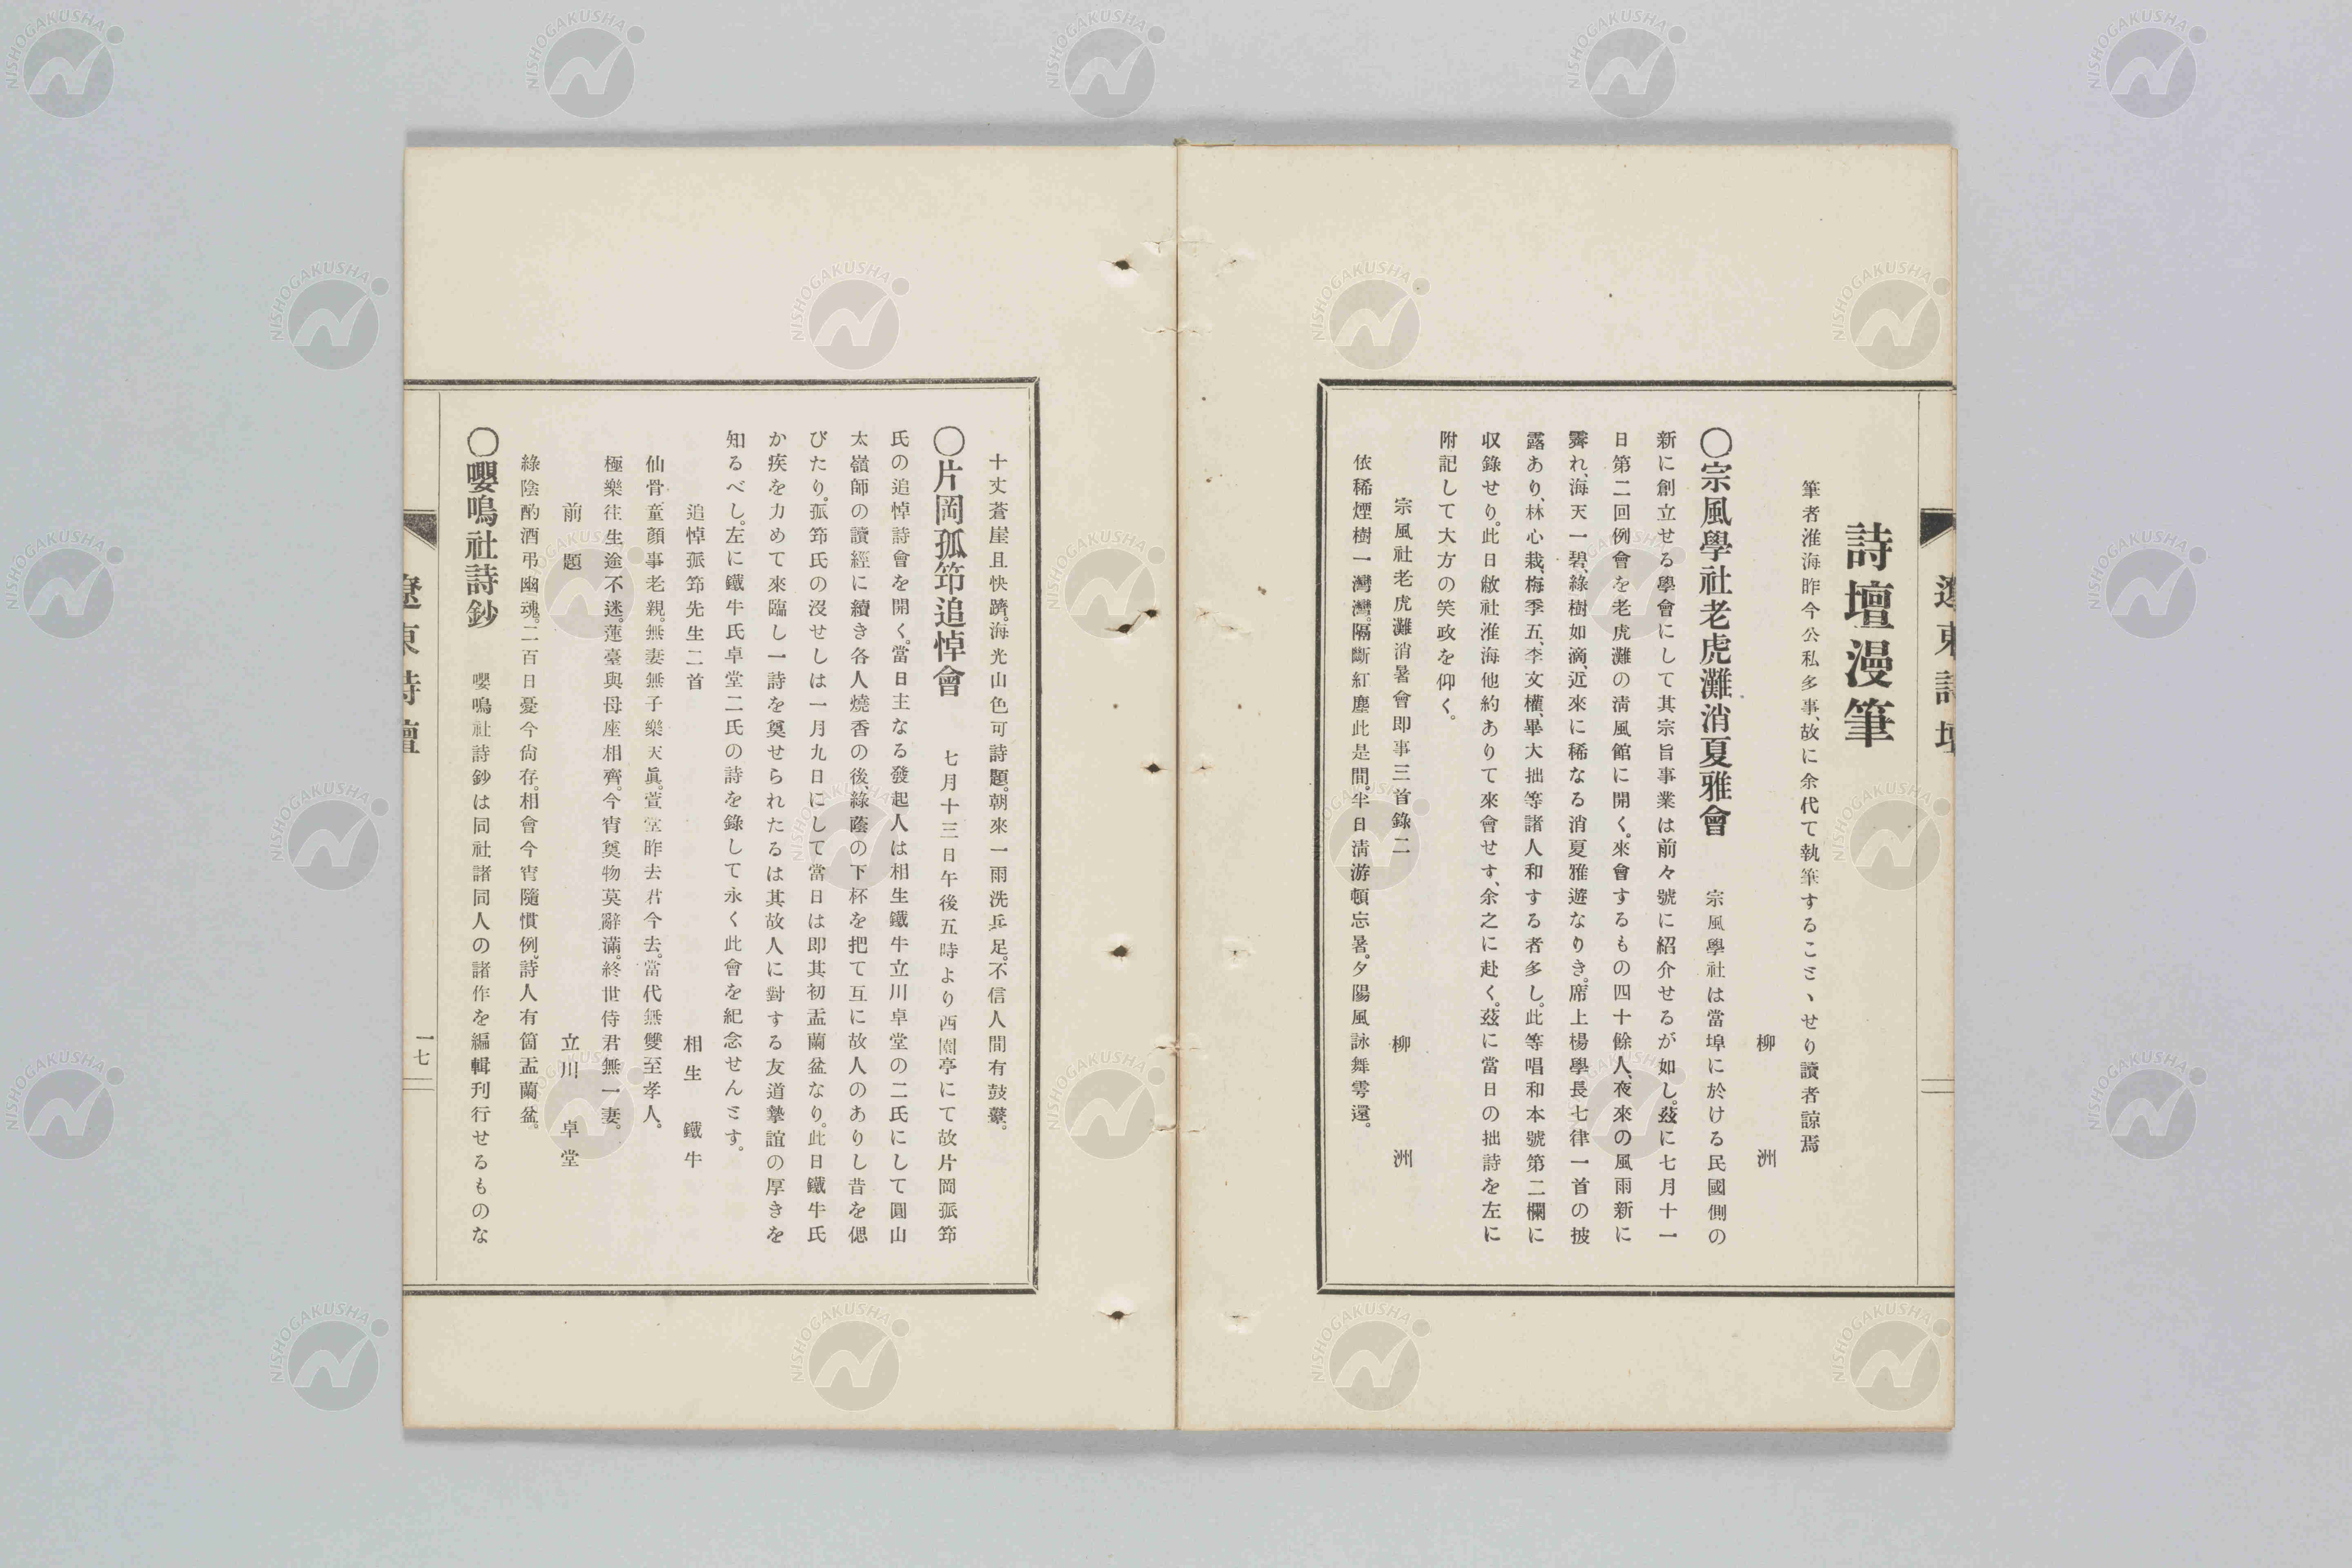 遼東詩壇
詩壇漫筆
筆者淮海昨今公私多事、故に余代て執筆することゝせり讀者諒焉
柳洲
〇宗風學社老虎灘消夏雅會　宗風學社は當埠に於ける民國側の
新に創立せる學會にして其宗旨事業は前々號に紹介せるが如し。茲に七月十一
日第二回例會を老虎灘の淸風館に開く。來會するもの四十餘人、夜來の風雨新に
霽れ、海天一碧、綠樹如滴、近來に稀なる消夏雅遊なりき。席上楊學長七律一首の披
露あり、林心栽、梅季五、李文權、畢大拙等諸人和する者多し。此等唱和本號第二欄に
収錄せり。此日敝社淮海他約ありて來會せす、余之に赴く。茲に當日の拙詩を左に
附記して大方の笑政を仰く。
宗風社老虎灘消暑會即事三首錄二　柳洲
依稀煙樹一灣灣。隔斷紅塵此是間。半日淸游頓忘暑。夕陽風詠舞雩還。
十丈蒼崖且快躋。海光山色可詩題。朝來一雨洗兵足。不信人間有鼓鼙。
〇片岡孤筇追悼會　七月十三日午後五時より西園亭にて故片岡孤筇
氏の追悼詩會を開く。當日主なる發起人は相生鐵牛立川卓堂の二氏にして圓山
太嶺師の讀經に續き各人燒香の後、綠蔭の下杯を把て互に故人のありし昔を偲
びたり。孤筇氏の沒せしは一月九日にして當日は即其初盂蘭盆なり。此日鐵牛氏
か疾を力めて來臨し一詩を奠せられたるは其故人に對する友道摯誼の厚きを
知るべし。左に鐵牛氏卓堂二氏の詩を錄して永く此會を紀念せんとす。
追悼孤筇先生二首　相生鐵牛
仙骨童顔事老親。無妻無子樂天眞。萱堂昨去君今去。當代無雙至孝人。
極樂往生途不迷。蓮臺與母座相齊。今宵奠物莫辭滿。終世侍君無一妻。
前題　立川卓堂
綠陰酌酒弔幽魂。二百日憂今尙存。相會今宵隨慣例。詩人有箇盂蘭盆。
〇嚶鳴社詩鈔　嚶鳴社詩鈔は同社諸同人の諸作を編輯刊行せるものな
遼東詩壇
一七
NISHOGAKUSHA